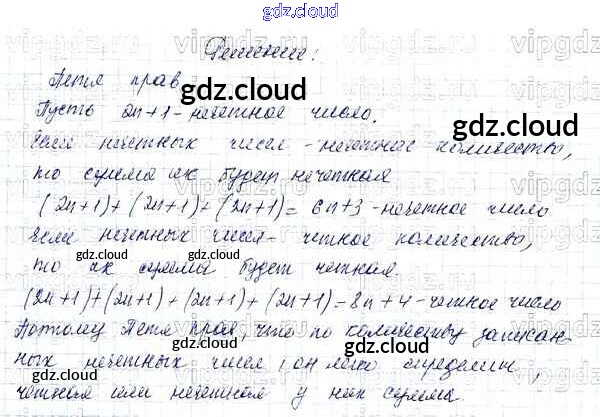 gdz.cloud
Решение:
Петя прав
gdz.cloud
Пусть 2n+1 - нечетное число.
gdz.cloud
Если нечетных чисел - нечетное количество,
то сумма их будет нечетная
(2n+1)+(2n+1)+(2n+1)=6n+3 - нечетное число
Если нечетных чисел - четное количество,
gdz.cloud
gdz.cloud
то их сумма будет четная.
(2n+1)+(2n+1)+(2n+1)+(2n+1)=8n+4 - четное число
Поэтому Петя прав, что по количеству записан-
ных нечетных чисел, он легко определит,
gdz.cloud
gdz.cloud
четная или нечетная у них сумма.